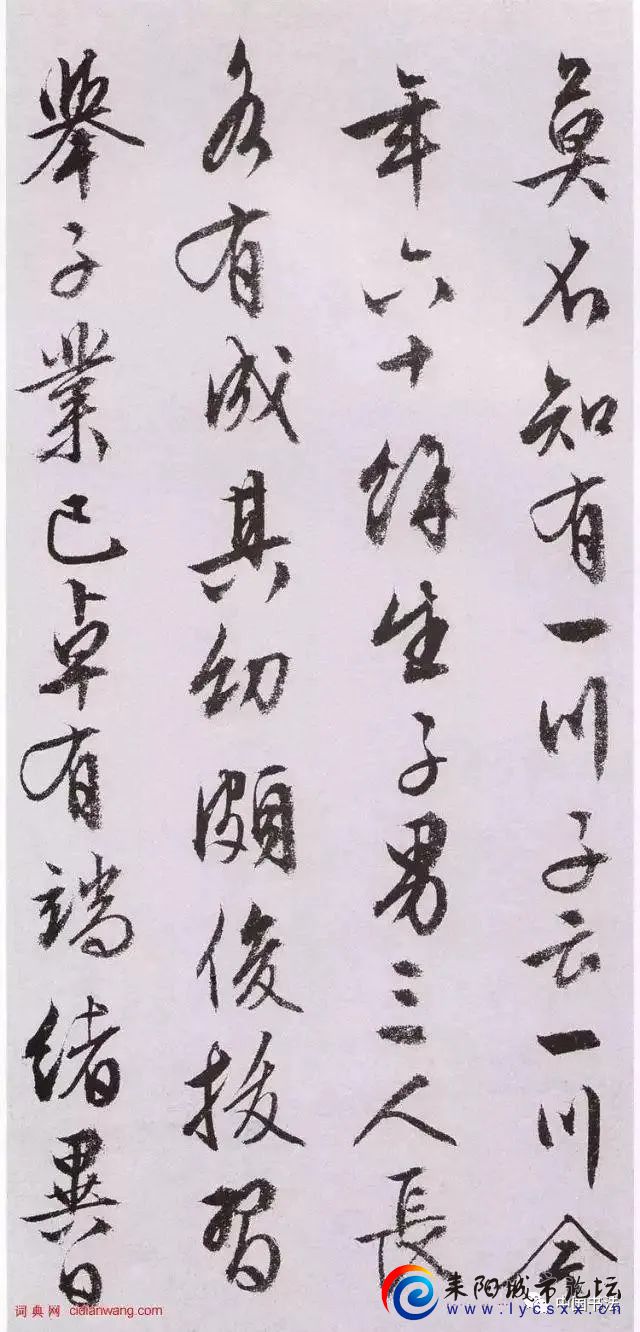 莫名知有一川子云一川今
年六十餘生子男三人長
各有成其幼頗俊拔習
舉子業已卓有端緒異日
词典网 cidianwang.com
耒阳城市论坛
www.lycsxx.cn
中国书法